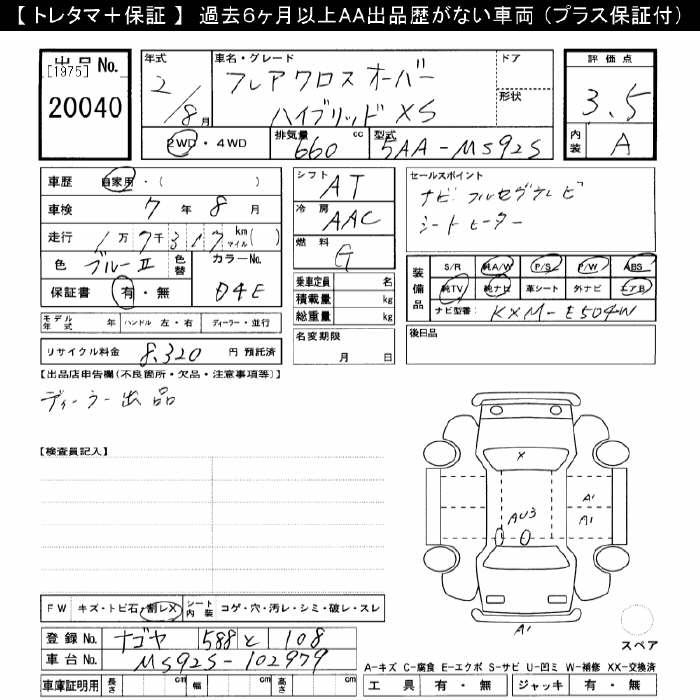 【 トレタマ＋保証 】 過去6ヶ月以上AA出品歴がない車両（プラス保証付）
出品 No.
[1975]
20040
年式
2/8月
車名・グレード
フレアクロスオーバー
ハイブリッド XS
ドア
形状
2WD・4WD
排気量
660 cc
型式
5AA-MS92S
評価点
3.5
内装
A
車歴 自家用・( )
車検 7年 8月
走行 1万7千317 km マイル( )
色 ブルーII 色替
カラーNo. D4E
保証書 有・無
モデル年式 年 ハンドル 左・右 ディーラー・並行
リサイクル料金 8,320 円 預託済
シフト AT
冷房 AAC
燃料 G
乗車定員 名
積載量 kg
総重量 kg
名変期限
月 日
セールスポイント
ナビ フルセグテレビ
シートヒーター
装備品
S/R 純A/W P/S P/W ABS
純TV 純ナビ 革シート 外ナビ エアB
ナビ型番: KXM-E504W
後日品
【出品店申告欄(不良箇所・欠品・注意事項等)】
ディーラー出品
【検査員記入】
X
A1
A1
AU3
A1
スペア
FW キズ・トビ石・割レX シート内装 コゲ・穴・汚レ・シミ・破レ・スレ
登録 No. ナゴヤ 588 と 108
車台 No. MS92S-102979
車庫証明用 長さ cm 幅 cm 高さ cm
A-キズ C-腐食 E-エクボ S-サビ U-凹ミ W-補修 XX-交換済
工具 有・無 ジャッキ 有・無